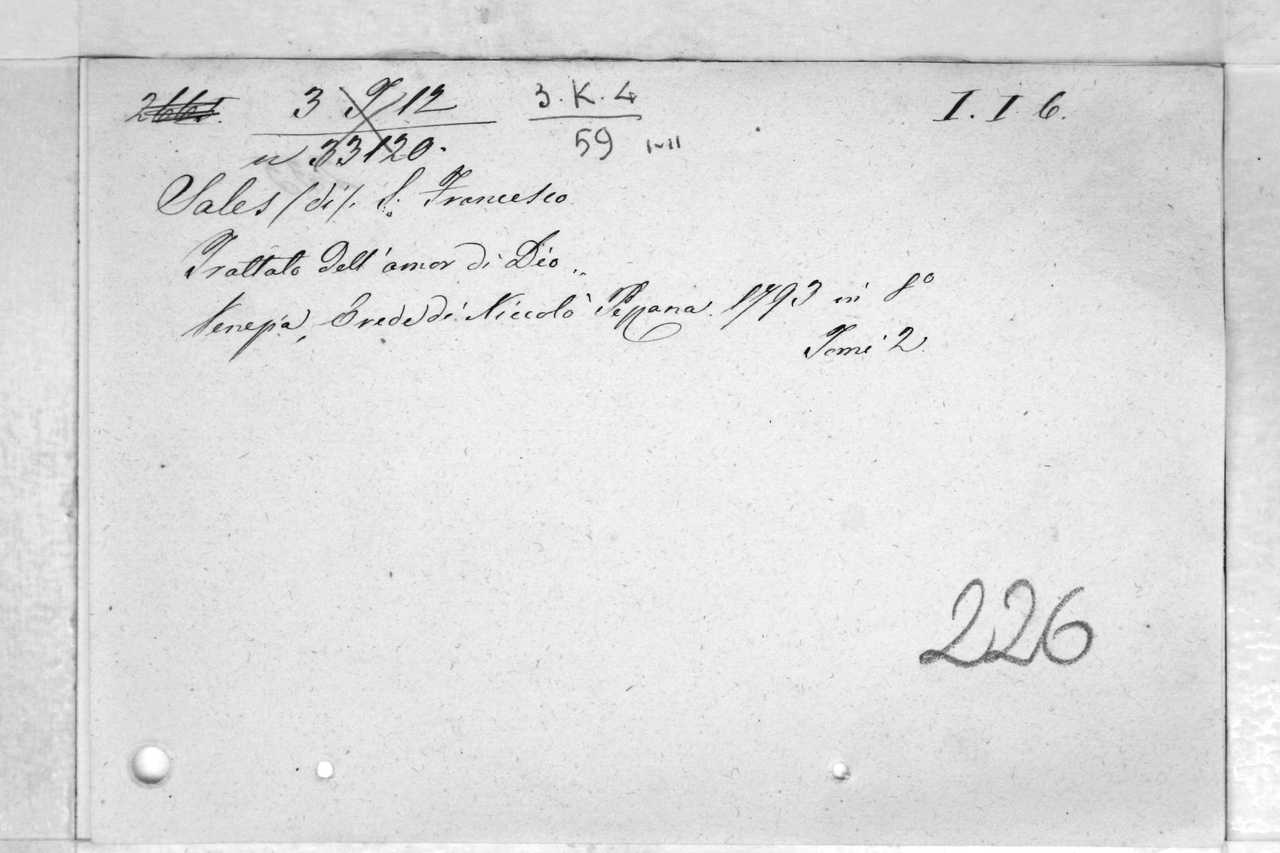 3 I 12 3.K.4 I. I 6.
33120. 59 I-II
Sales /di/. S. Francesco
Trattato dell'amor di Dio..
Venezia, Erede di Niccolò Pezzana. 1793 in 8°
Tomi 2.
226